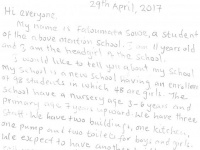 29th April, 2017
Hi everyone,
My name is Fatoumatta, a student
of the above mention School. I am 11 years old
and I am the headgirl in the school.
I would like to tell you about my school
My School is a new school having an enrollment
of 78 students in which 48 are girls. The
school have a nursery age 3-6 years and
primary age 7 years upward. We have three
staff. We have two building, one kitchen,
one pump and two toilets for boys and girls.
We expect to have another